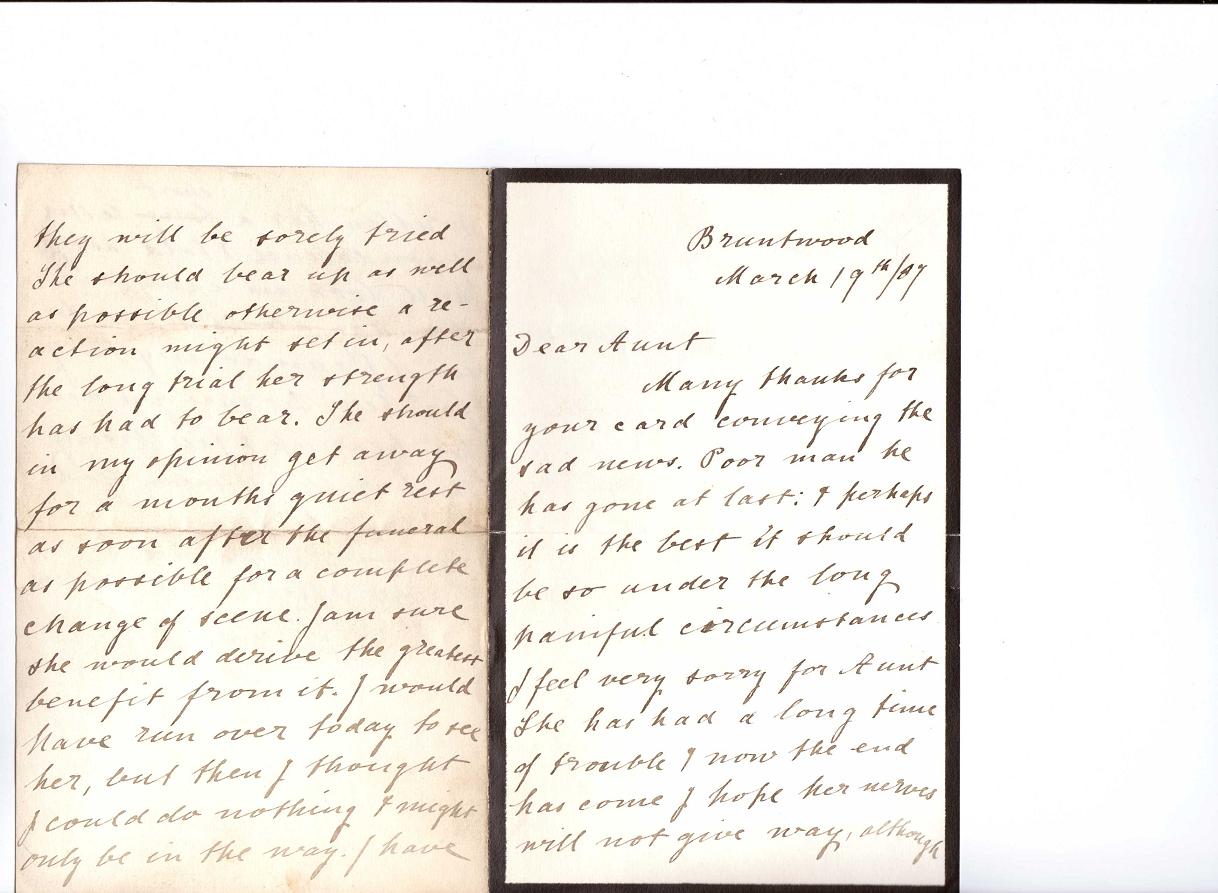 Bruntwood
March 19th/97
Dear Aunt
Many thanks for
your card conveying the
sad news. Poor man he
has gone at last: & perhaps
it is the best it should
be so under the long
painful circumstances
I feel very sorry for Aunt
She has had a long time
of trouble & now the end
has come I hope her nerves
will not give way, although
they will be sorely tried
She should bear up as well
as possible otherwise a re-
action might set in, after
the long trial her strength
has had to bear. She should
in my opinion get away
for a months quiet rest
as soon after the funeral
as possible for a complete
change of scene. I am sure
she would derive the greatest
benefit from it. I would
have run over today to see
her, but then I thought
I could do nothing & might
only be in the way. I have